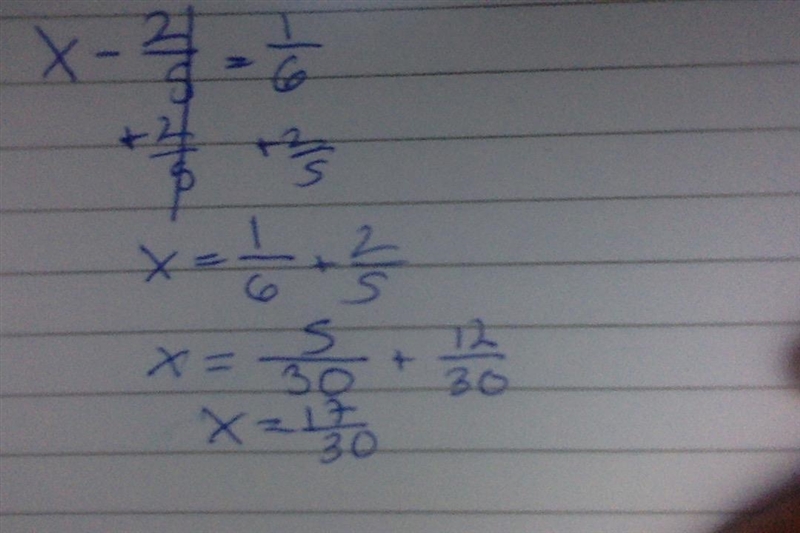 x - 2/5 = 1/6
+ 2/5 + 2/5
x = 1/6 + 2/5
x = 5/30 + 12/30
x = 17/30